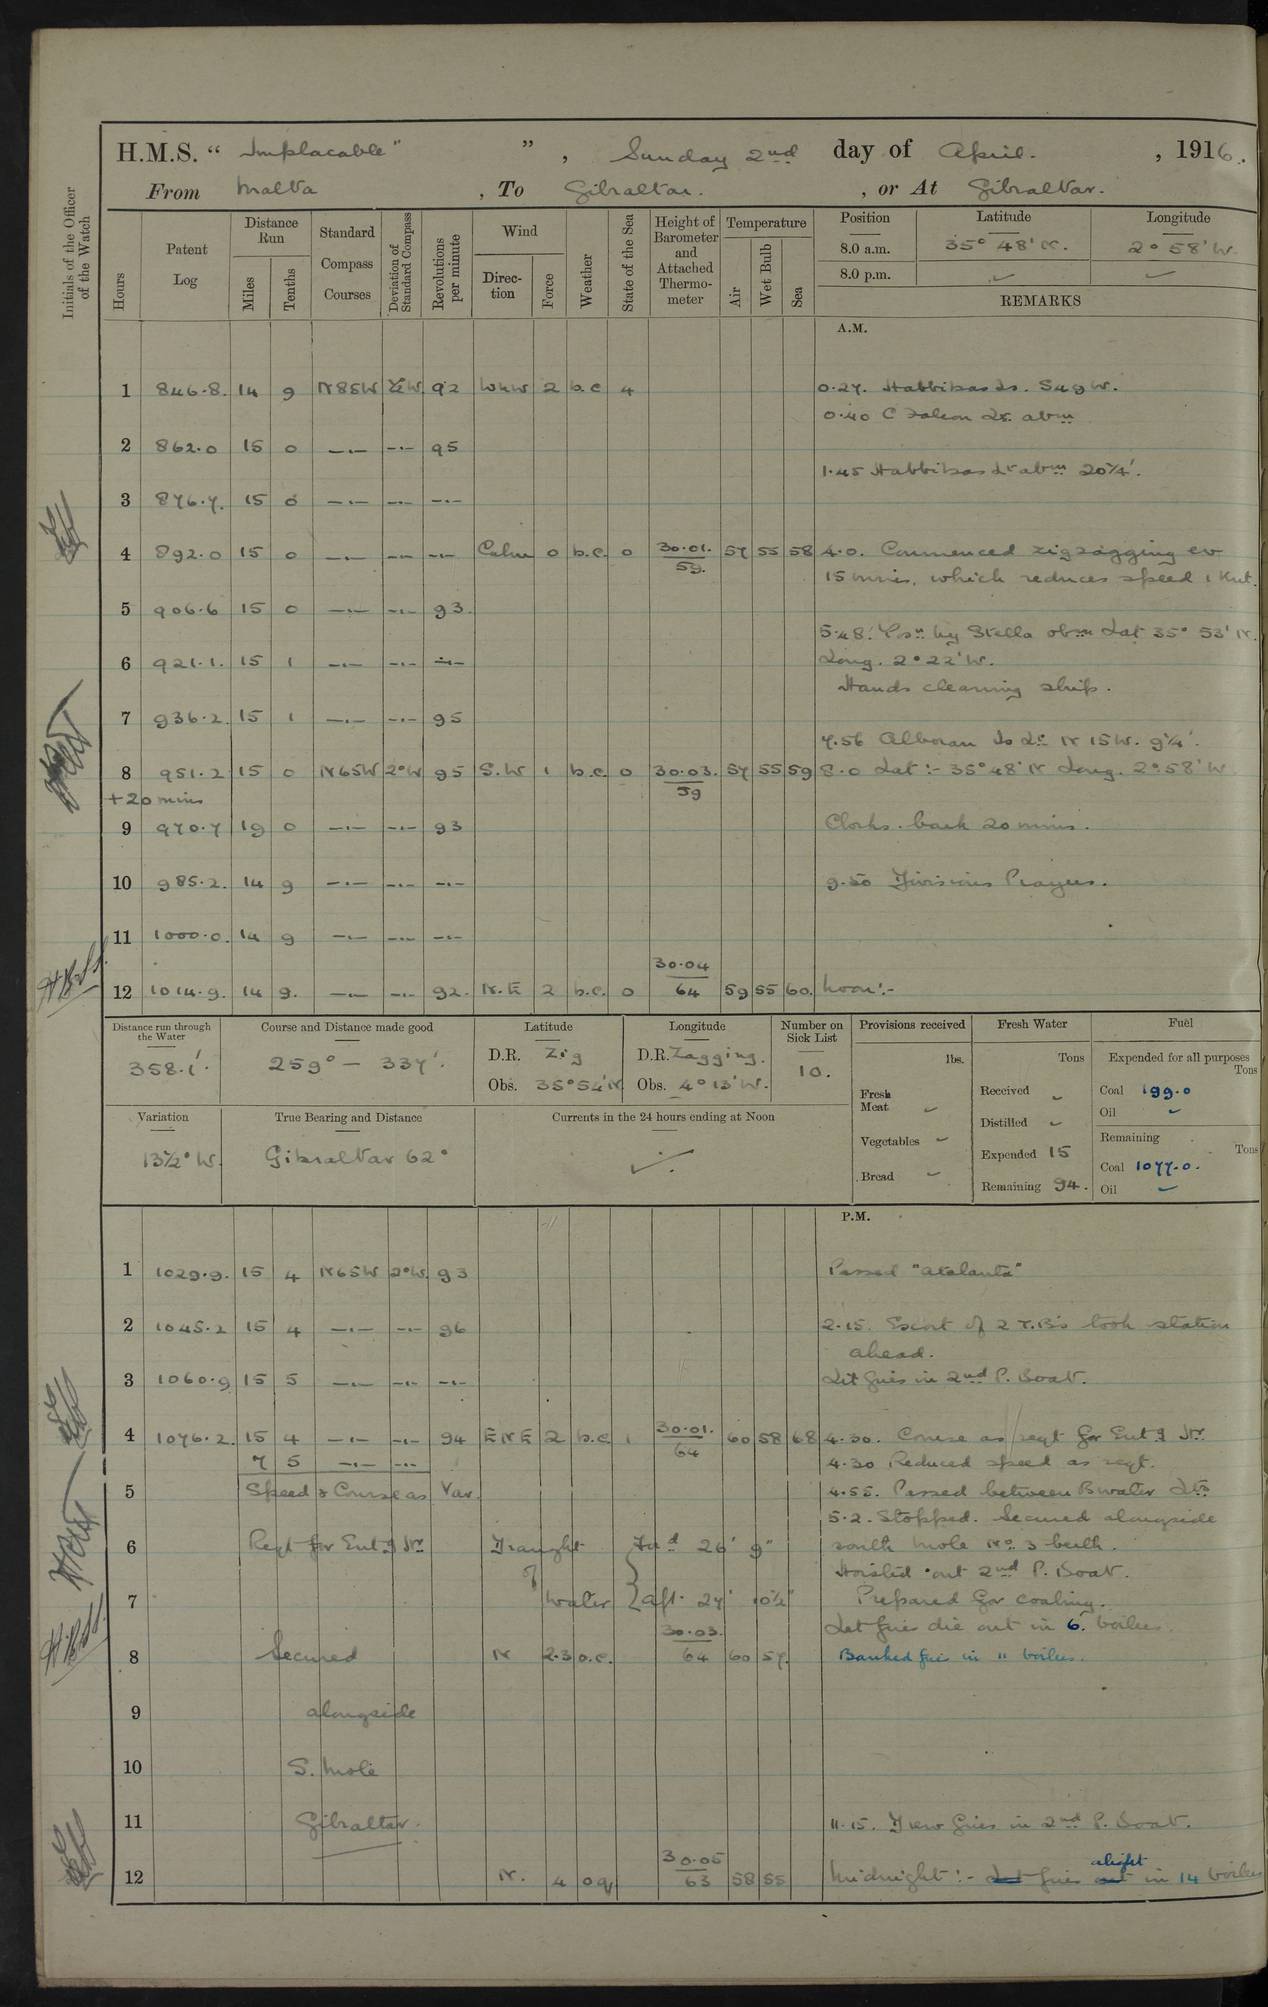 H.M.S. " Implacable " ", Sunday 2nd day of April. , 1916.
From Malta , To Gibraltar. , or At Gibraltar.
Initials of the Officer of the Watch
Hours Patent Log Distance Run Miles Tenths Standard Compass Courses Deviation of Standard Compass Revolutions per minute Wind Direction Force Weather State of the Sea Height of Barometer and Attached Thermometer Temperature Air Wet Bulb Sea
Position Latitude Longitude
8.0 a.m. 35° 48' N. 2° 58' W.
8.0 p.m. ✓ ✓
REMARKS
A.M.
1 846.8. 14 9 N85W ½°W. 92 WNW 2 b.c 4 0.27. Habbibas Is. S49W.
0.40 C Falcon Lt. abm
2 862.0 15 0 —.— —.— 95
1.45 Habbibas Lt abm 20¼'.
3 876.7. 15 0 —.— —.— —.—
4 892.0 15 0 —.— —.— —.— Calm 0 b.c. 0 30.01. 59. 57 55 58 4.0. Commenced zigzagging ev
15 mins. which reduces speed 1 Knt.
5 906.6 15 0 —.— —.— 93.
5.48. Posn by Stella obsn Lat 35° 53' N.
6 921.1. 15 1 —.— —.— —.— Long. 2° 22' W.
Hands cleaning ship.
7 936.2. 15 1 —.— —.— 95
7.56 Alboran Is Lt N 15W. 9¼'.
8 951.2 15 0 N65W 2°W 95 S.W 1 b.c. 0 30.03. 59 57 55 59 8.0 Lat :- 35° 48' N Long. 2° 58' W
+20 mins
9 970.7 19 0 —.— —.— 93 Clocks back 20 mins.
10 985.2. 14 9 —.— —.— —.— 9.50 Divisions Prayers.
11 1000.0. 14 9 —.— —.— —.—
12 1014.9. 14 9. —.— —.— 92. N.E 2 b.c. 0 30.04 64 59 55 60. Noon :-
Distance run through the Water Course and Distance made good Latitude Longitude Number on Sick List Provisions received Fresh Water Fuel
358.1'. 259° — 337'. D.R. Zig D.R. Zagging. 10.
Obs. 35° 54' N Obs. 4° 13' W.
lbs. Tons Expended for all purposes Tons
Fresh Meat ✓ Received ✓ Coal 199.0
Distilled ✓ Oil ✓
Variation True Bearing and Distance Currents in the 24 hours ending at Noon
13½° W. Gibraltar 62°
Vegetables ✓ Expended 15 Remaining Tons
Bread ✓ Remaining 94. Coal 1077.0.
Oil ✓
P.M.
1 1029.9. 15 4 N65W 2°W. 93 Passed "Atalanta"
2 1045.2 15 4 —.— —.— 96 2.15. Escort of 2 T.B's took station
ahead.
3 1060.9 15 5 —.— —.— —.— Lit fires in 2nd P. Boat.
4 1076.2. 15 4 —.— —.— 94 ENE 2 b.c. 1 30.01. 64 60 58 68 4.30. Course as reqt for Entg Hr.
7 5 —.— —.— 4.30 Reduced speed as reqt.
5 Speed & Course as Var. 4.55. Passed between Bwater Lts
5.2. Stopped. Secured alongside
6 Reqt for Entg Hr Draught Ford 26' 9" south mole No 3 berth.
of Hoisted out 2nd P. Boat.
7 Water aft. 27' 10½" Prepared for coaling.
Let fires die out in 6. boilers.
8 Secured N 2.3 o.c. 30.03. 64 60 57. Banked fires in " boilers.
9 alongside
10 S. Mole
11 Gibraltar. 11.15. Drew fires in 2nd P. Boat.
12 N. 4 o q 30.05 63 58 55 Midnight :- Let fires out alight in 14 boilers